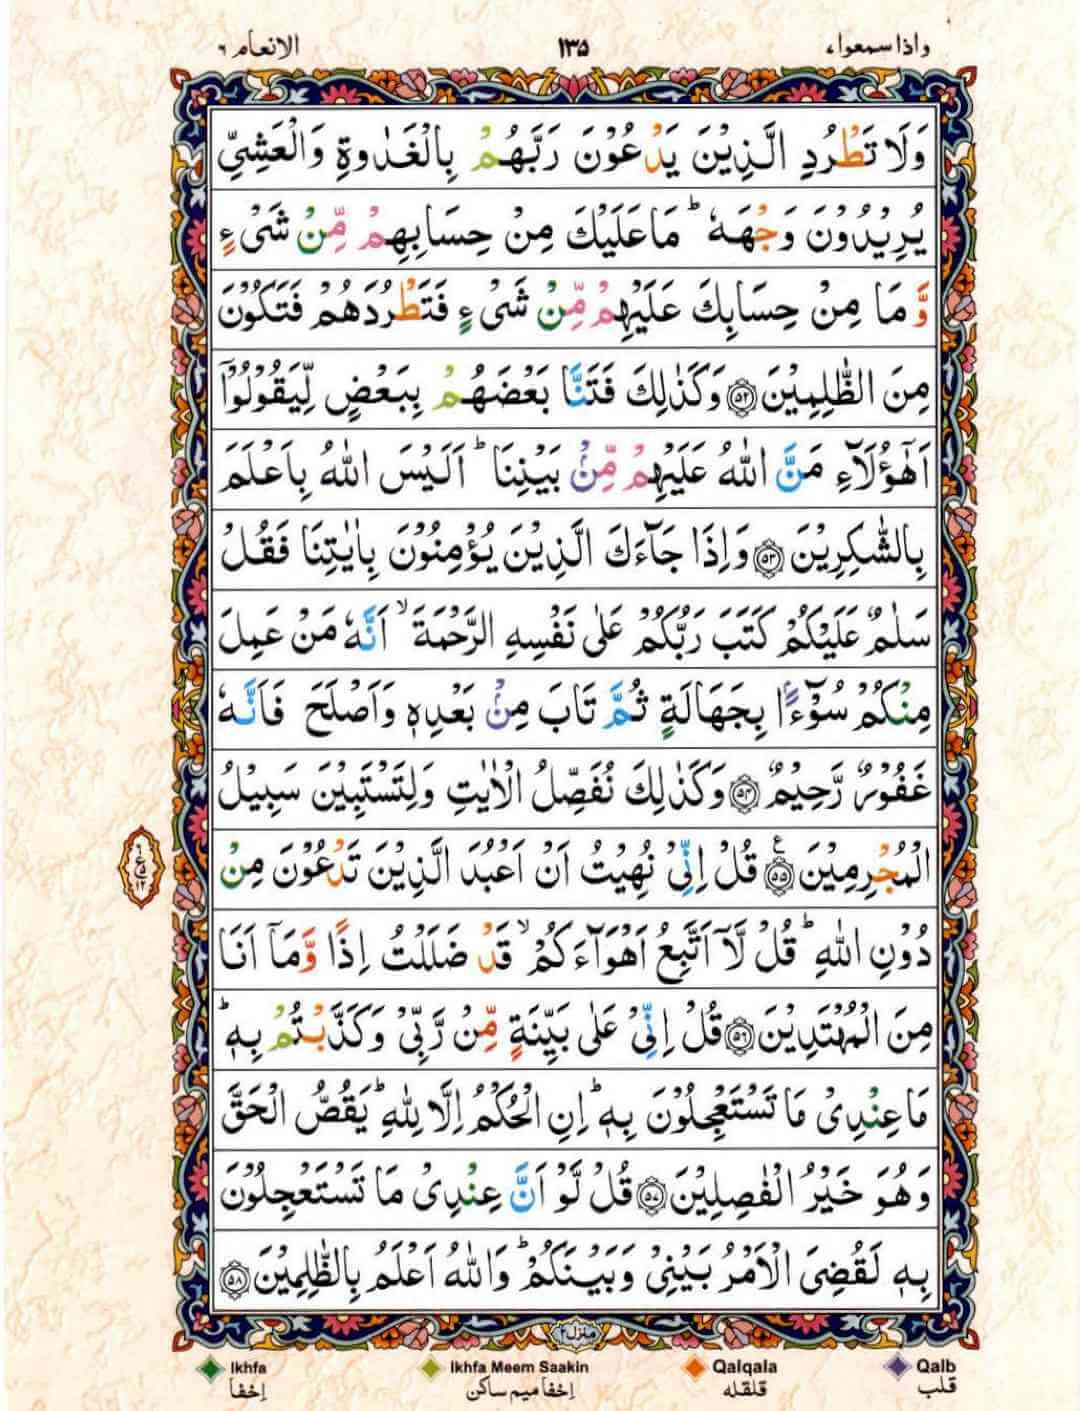 واذا سمعوا، ۱۳۵ الانعام ٦
وَلَا تَطْرُدِ الَّذِيْنَ يَدْعُوْنَ رَبَّهُمْ بِالْغَدٰوةِ وَالْعَشِيِّ
يُرِيْدُوْنَ وَجْهَهٗ ؕ مَا عَلَيْكَ مِنْ حِسَابِهِمْ مِّنْ شَيْءٍ
وَّمَا مِنْ حِسَابِكَ عَلَيْهِمْ مِّنْ شَيْءٍ فَتَطْرُدَهُمْ فَتَكُوْنَ
مِنَ الظّٰلِمِيْنَ ﴿۵۲﴾ وَكَذٰلِكَ فَتَنَّا بَعْضَهُمْ بِبَعْضٍ لِّيَقُوْلُوْۤا
اَهٰۤؤُلَآءِ مَنَّ اللّٰهُ عَلَيْهِمْ مِّنْۢ بَيْنِنَا ؕ اَلَيْسَ اللّٰهُ بِاَعْلَمَ
بِالشّٰكِرِيْنَ ﴿۵۳﴾ وَاِذَا جَآءَكَ الَّذِيْنَ يُؤْمِنُوْنَ بِاٰيٰتِنَا فَقُلْ
سَلٰمٌ عَلَيْكُمْ كَتَبَ رَبُّكُمْ عَلٰى نَفْسِهِ الرَّحْمَةَ ۙ اَنَّهٗ مَنْ عَمِلَ
مِنْكُمْ سُوْٓءًۢا بِجَهَالَةٍ ثُمَّ تَابَ مِنْۢ بَعْدِهٖ وَاَصْلَحَ فَاَنَّهٗ
غَفُوْرٌ رَّحِيْمٌ ﴿۵۴﴾ وَكَذٰلِكَ نُفَصِّلُ الْاٰيٰتِ وَلِتَسْتَبِيْنَ سَبِيْلُ
الْمُجْرِمِيْنَ ﴿۵۵﴾ ع قُلْ اِنِّيْ نُهِيْتُ اَنْ اَعْبُدَ الَّذِيْنَ تَدْعُوْنَ مِنْ
٦
ع ۵
۱۲
دُوْنِ اللّٰهِ ؕ قُلْ لَّاۤ اَتَّبِعُ اَهْوَآءَكُمْ ۙ قَدْ ضَلَلْتُ اِذًا وَّمَاۤ اَنَا
مِنَ الْمُهْتَدِيْنَ ﴿۵۶﴾ قُلْ اِنِّيْ عَلٰى بَيِّنَةٍ مِّنْ رَّبِّيْ وَكَذَّبْتُمْ بِهٖ ؕ
مَا عِنْدِيْ مَا تَسْتَعْجِلُوْنَ بِهٖ ؕ اِنِ الْحُكْمُ اِلَّا لِلّٰهِ ؕ يَقُصُّ الْحَقَّ
وَهُوَ خَيْرُ الْفٰصِلِيْنَ ﴿۵۷﴾ قُلْ لَّوْ اَنَّ عِنْدِيْ مَا تَسْتَعْجِلُوْنَ
بِهٖ لَقُضِيَ الْاَمْرُ بَيْنِيْ وَبَيْنَكُمْ ؕ وَاللّٰهُ اَعْلَمُ بِالظّٰلِمِيْنَ ﴿۵۸﴾
منزل ۲
Ikhfa Ikhfa Meem Saakin Qalqala Qalb
اِخفا اِخفا میم ساکن قلقله قلب